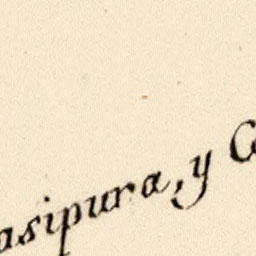 asipura, y C